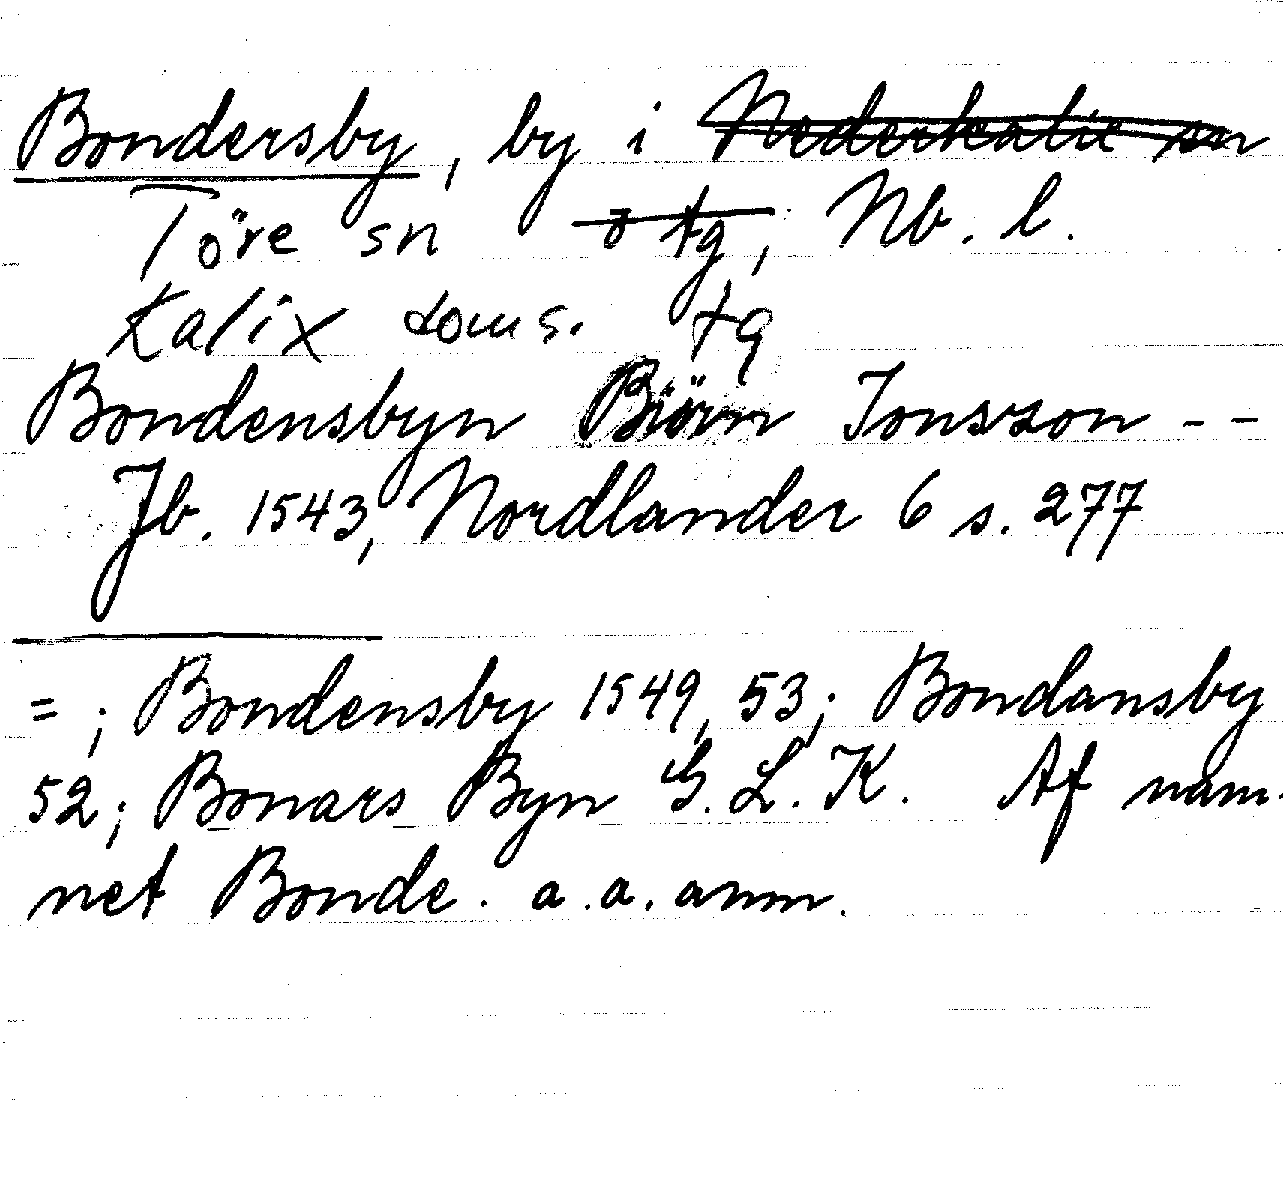 Bondersby, by i Nederkalix sn
Töre sn o tg, Nb. l.
Kalix doms. tg
Bondensbyn Biörn Jonsson --
Jb. 1543, Nordlander 6 s. 277
= ; Bondensby 1549, 53; Bondansby
52; Bonars Byn G. L. K. Af nam-
net Bonde. a.a. anm.